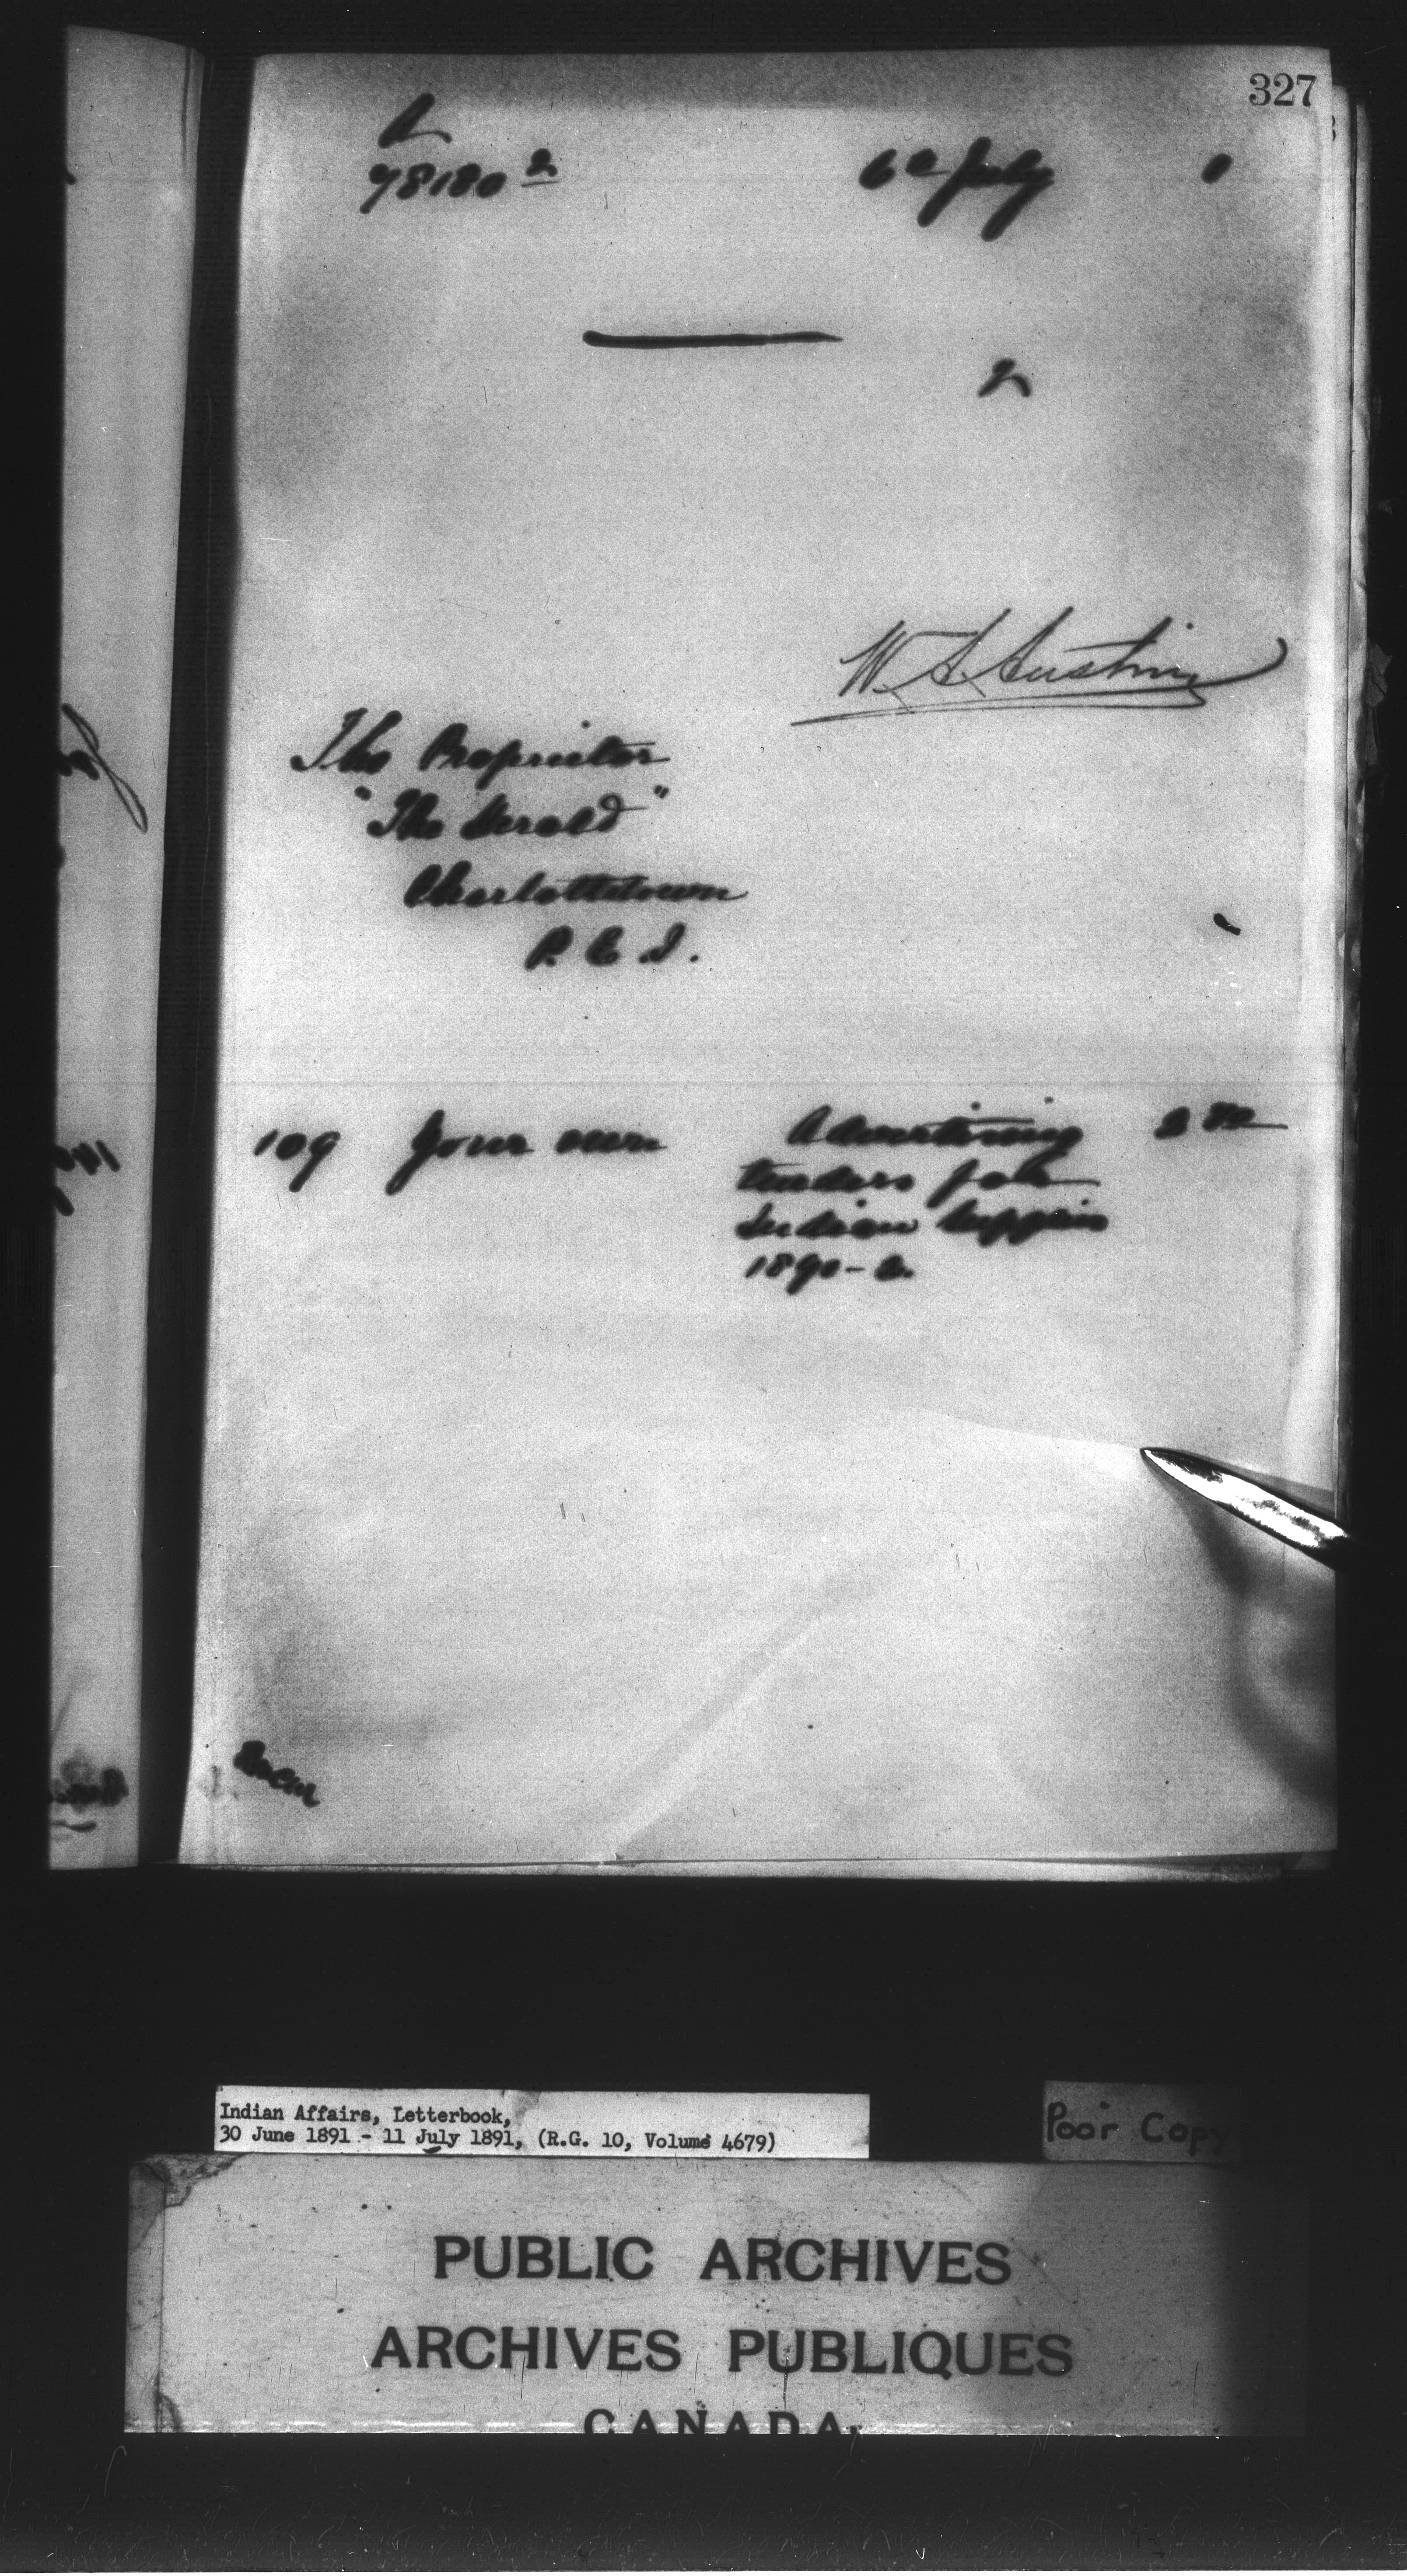 327
A
78180 2
6th July 1
2
W. A. Austin
The Proprietor
"The Herald"
Charlottetown
P. E. I.
109 Your own Advertising 2 82
tenders for
Indian Supplies
1890-
Indian Affairs, Letterbook,
30 June 1891 - 11 July 1891, (R.G. 10, Volume 4679)
Poor Copy
PUBLIC ARCHIVES
ARCHIVES PUBLIQUES
CANADA